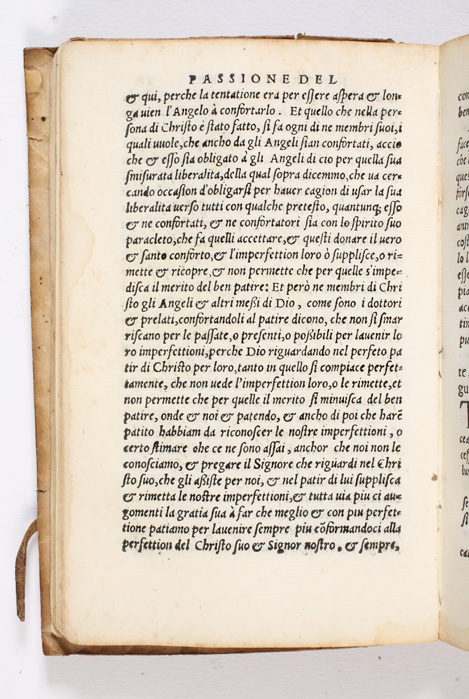 PASSIONE DEL
& qui, perche la tentatione era per essere aspera & lon-
ga uien l'Angelo à confortarlo. Et quello che nella per-
sona di Christo é stato fatto, si fa ogni dì ne membri suoi, i
quali uuole, che ancho da gli Angeli sian confortati, accio
che & esso sia obligato à gli Angeli di cio per quella sua
smisurata liberalita, della qual sopra dicemmo, che ua cer-
cando occasion d'obligarsi per hauer cagion di usar la sua
liberalita uerso tutti con qualche pretesto, quantunq; esso
& ne confortati, & ne confortatori sia con lo spirito suo
paracleto, che fa quelli accettare, & questi donare il uero
& santo conforto, & l'imperfettion loro ò supplisce, o ri-
mette & ricopre, & non permette che per quelle s'impe-
disca il merito del ben patire: Et però ne membri di Chri
sto gli Angeli & altri meßi di Dio, come sono i dottori
& prelati, confortandoli al patire dicono, che non si smar
riscano per le passate, o presenti, o poßibili per lauenir lo
ro imperfettioni, perche Dio riguardando nel perfeto pa
tir di Christo per loro, tanto in quello si compiace perfet-
tamente, che non uede l'imperfettion loro, o le rimette, et
non permette che per quelle il merito si minuisca del ben
patire, onde & noi & patendo, & ancho di poi che harẽ
patito habbiam da riconoscer le nostre imperfettioni, o
certo stimare che ce ne sono assai, anchor che noi non le
conosciamo, & pregare il Signore che riguardi nel Chri
sto suo, che gli aßiste per noi, & nel patir di lui supplisca
& rimetta le nostre imperfettioni, & tutta uia piu ci au-
gomenti la gratia sua à far che meglio & con piu perfet-
tione patiamo per lauenire sempre piu cõformandoci alla
perfettion del Christo suo & Signor nostro, & sempre,